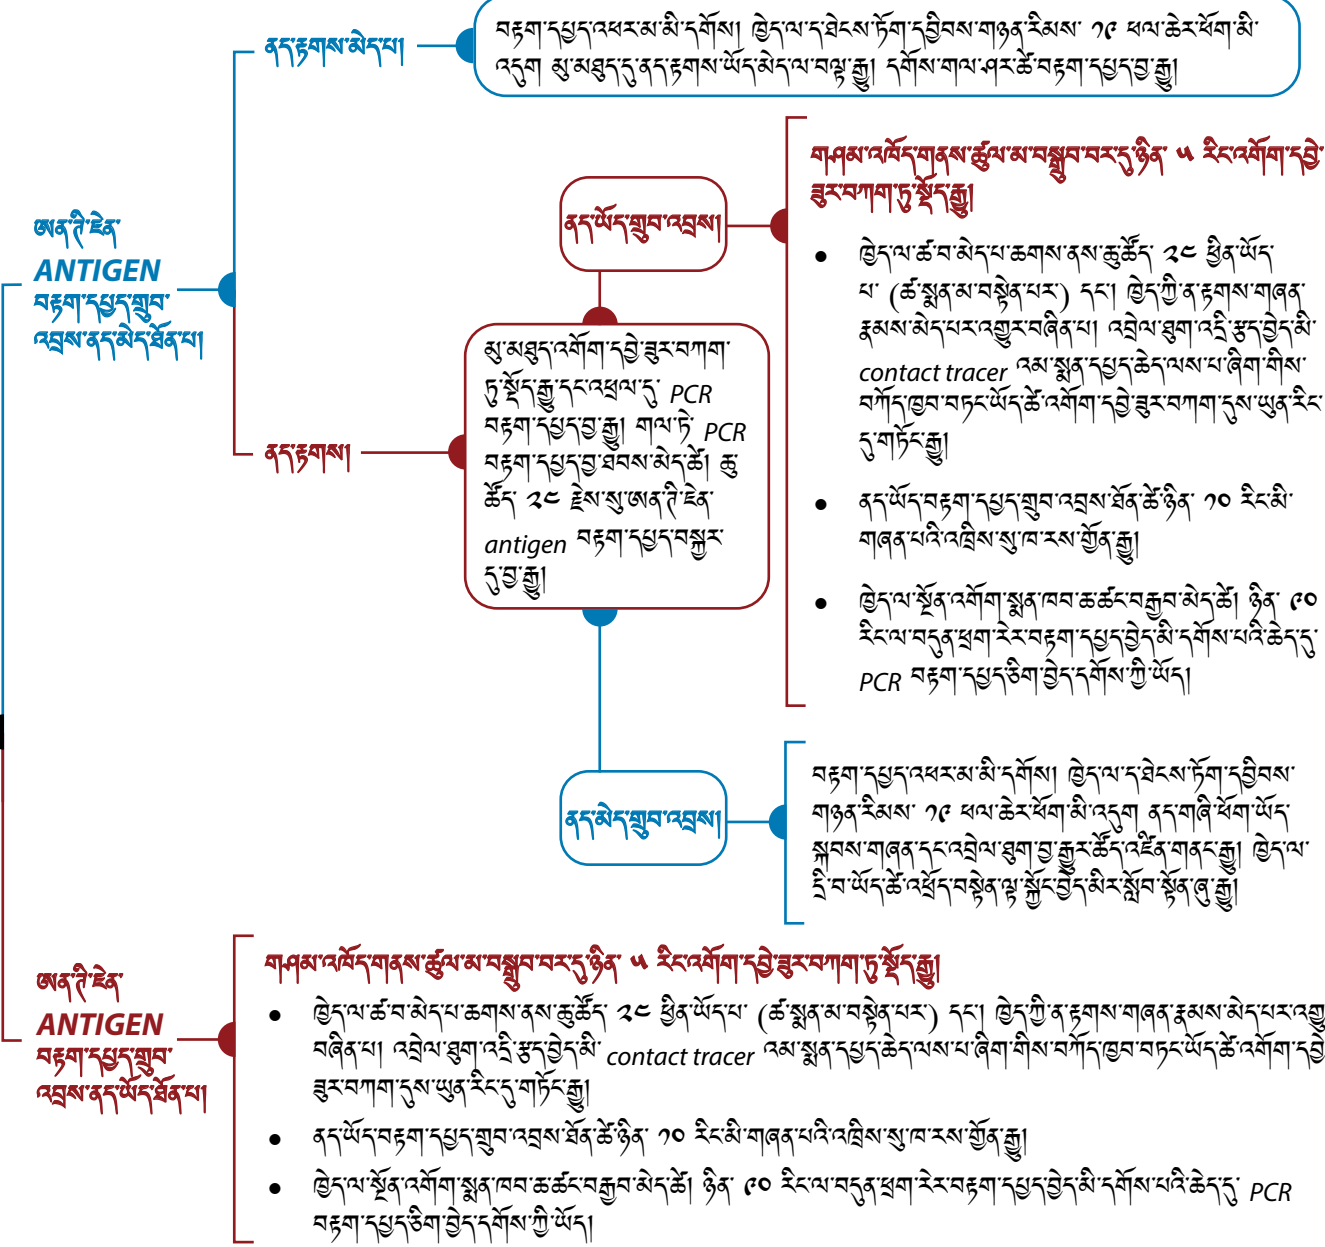 ཨན་ཊི་ཇེན་
ANTIGEN
བརྟག་དཔྱད་གྲུབ་
འབྲས་ནད་མེད་ཐོན་པ།
ནད་རྟགས་མེད་པ།
བརྟག་དཔྱད་འཕར་མ་མི་དགོས། ཁྱེད་ལ་ད་ཐེངས་ཏོག་དབྱིབས་གཉན་རིམས་ ༡༩ ཕལ་ཆེར་ཕོག་མི་
འདུག མུ་མཐུད་དུ་ནད་རྟགས་ཡོད་མེད་ལ་བལྟ་རྒྱུ། དགོས་གལ་ཤར་ཚེ་བརྟག་དཔྱད་བྱ་རྒྱུ།
ནད་རྟགས།
མུ་མཐུད་འགོག་དབྱེ་ཟུར་བཀག་
ཏུ་སྡོད་རྒྱུ་དང་འཕྲལ་དུ་ PCR
བརྟག་དཔྱད་བྱ་རྒྱུ། གལ་ཏེ་ PCR
བརྟག་དཔྱད་བྱ་ཐབས་མེད་ཚེ། ཆུ་
ཚོད་ ༢༤ རྗེས་སུ་ཨན་ཊི་ཇེན་
antigen བརྟག་དཔྱད་བསྐྱར་
དུ་བྱ་རྒྱུ།
ནད་ཡོད་གྲུབ་འབྲས།
གཤམ་འཁོད་གནས་ཚུལ་མ་བསྒྲུབ་བར་དུ་ཉིན་ ༥ རིང་འགོག་དབྱེ་
ཟུར་བཀག་ཏུ་སྡོད་རྒྱུ།
● ཁྱེད་ལ་ཚ་བ་མེད་པ་ཆགས་ནས་ཆུ་ཚོད་ ༢༤ ཕྱིན་ཡོད་
པ་ (ཚ་སྨན་མ་བསྟེན་པར་) དང་། ཁྱེད་ཀྱི་ན་རྟགས་གཞན་
རྣམས་མེད་པར་འགྱུར་བཞིན་པ། འབྲེལ་ཐུག་འདྲི་རྩད་བྱེད་མི་
contact tracer འམ་སྨན་དཔྱད་ཆེད་ལས་པ་ཞིག་གིས་
བཀོད་ཁྱབ་བཏང་ཡོད་ཚེ་འགོག་དབྱེ་ཟུར་བཀག་དུས་ཡུན་རིང་
དུ་གཏོང་རྒྱུ།
● ནད་ཡོད་བརྟག་དཔྱད་གྲུབ་འབྲས་ཐོན་ཚེ་ཉིན་ ༡༠ རིང་མི་
གཞན་པའི་འཁྲིས་སུ་ཁ་རས་གྱོན་རྒྱུ།
● ཁྱེད་ལ་སྔོན་འགོག་སྨན་ཁབ་ཆ་ཚང་བརྒྱབ་མེད་ཚེ། ཉིན་ ༩༠
རིང་ལ་བདུན་ཕྲག་རེར་བརྟག་དཔྱད་བྱེད་མི་དགོས་པའི་ཆེད་དུ་
PCR བརྟག་དཔྱད་ཅིག་བྱེད་དགོས་ཀྱི་ཡོད།
ནད་མེད་གྲུབ་འབྲས།
བརྟག་དཔྱད་འཕར་མ་མི་དགོས། ཁྱེད་ལ་ད་ཐེངས་ཏོག་དབྱིབས་
གཉན་རིམས་ ༡༩ ཕལ་ཆེར་ཕོག་མི་འདུག ནད་གཞི་ཕོག་ཡོད་
སྐབས་གཞན་དང་འབྲེལ་ཐུག་བྱ་རྒྱུར་ཚོད་འཛིན་གནང་རྒྱུ། ཁྱེད་ལ་
དྲི་བ་ཡོད་ཚེ་འཕྲོད་བསྟེན་ལྟ་སྐྱོང་བྱེད་མིར་སློབ་སྟོན་ཞུ་རྒྱུ།
ཨན་ཊི་ཇེན་
ANTIGEN
བརྟག་དཔྱད་གྲུབ་
འབྲས་ནད་ཡོད་ཐོན་པ།
གཤམ་འཁོད་གནས་ཚུལ་མ་བསྒྲུབ་བར་དུ་ཉིན་ ༥ རིང་འགོག་དབྱེ་ཟུར་བཀག་ཏུ་སྡོད་རྒྱུ།
● ཁྱེད་ལ་ཚ་བ་མེད་པ་ཆགས་ནས་ཆུ་ཚོད་ ༢༤ ཕྱིན་ཡོད་པ་ (ཚ་སྨན་མ་བསྟེན་པར་) དང་། ཁྱེད་ཀྱི་ན་རྟགས་གཞན་རྣམས་མེད་པར་འགྱུ
བཞིན་པ། འབྲེལ་ཐུག་འདྲི་རྩད་བྱེད་མི་ contact tracer འམ་སྨན་དཔྱད་ཆེད་ལས་པ་ཞིག་གིས་བཀོད་ཁྱབ་བཏང་ཡོད་ཚེ་འགོག་དབྱེ
ཟུར་བཀག་དུས་ཡུན་རིང་དུ་གཏོང་རྒྱུ།
● ནད་ཡོད་བརྟག་དཔྱད་གྲུབ་འབྲས་ཐོན་ཚེ་ཉིན་ ༡༠ རིང་མི་གཞན་པའི་འཁྲིས་སུ་ཁ་རས་གྱོན་རྒྱུ།
● ཁྱེད་ལ་སྔོན་འགོག་སྨན་ཁབ་ཆ་ཚང་བརྒྱབ་མེད་ཚེ། ཉིན་ ༩༠ རིང་ལ་བདུན་ཕྲག་རེར་བརྟག་དཔྱད་བྱེད་མི་དགོས་པའི་ཆེད་དུ་ PCR
བརྟག་དཔྱད་ཅིག་བྱེད་དགོས་ཀྱི་ཡོད།